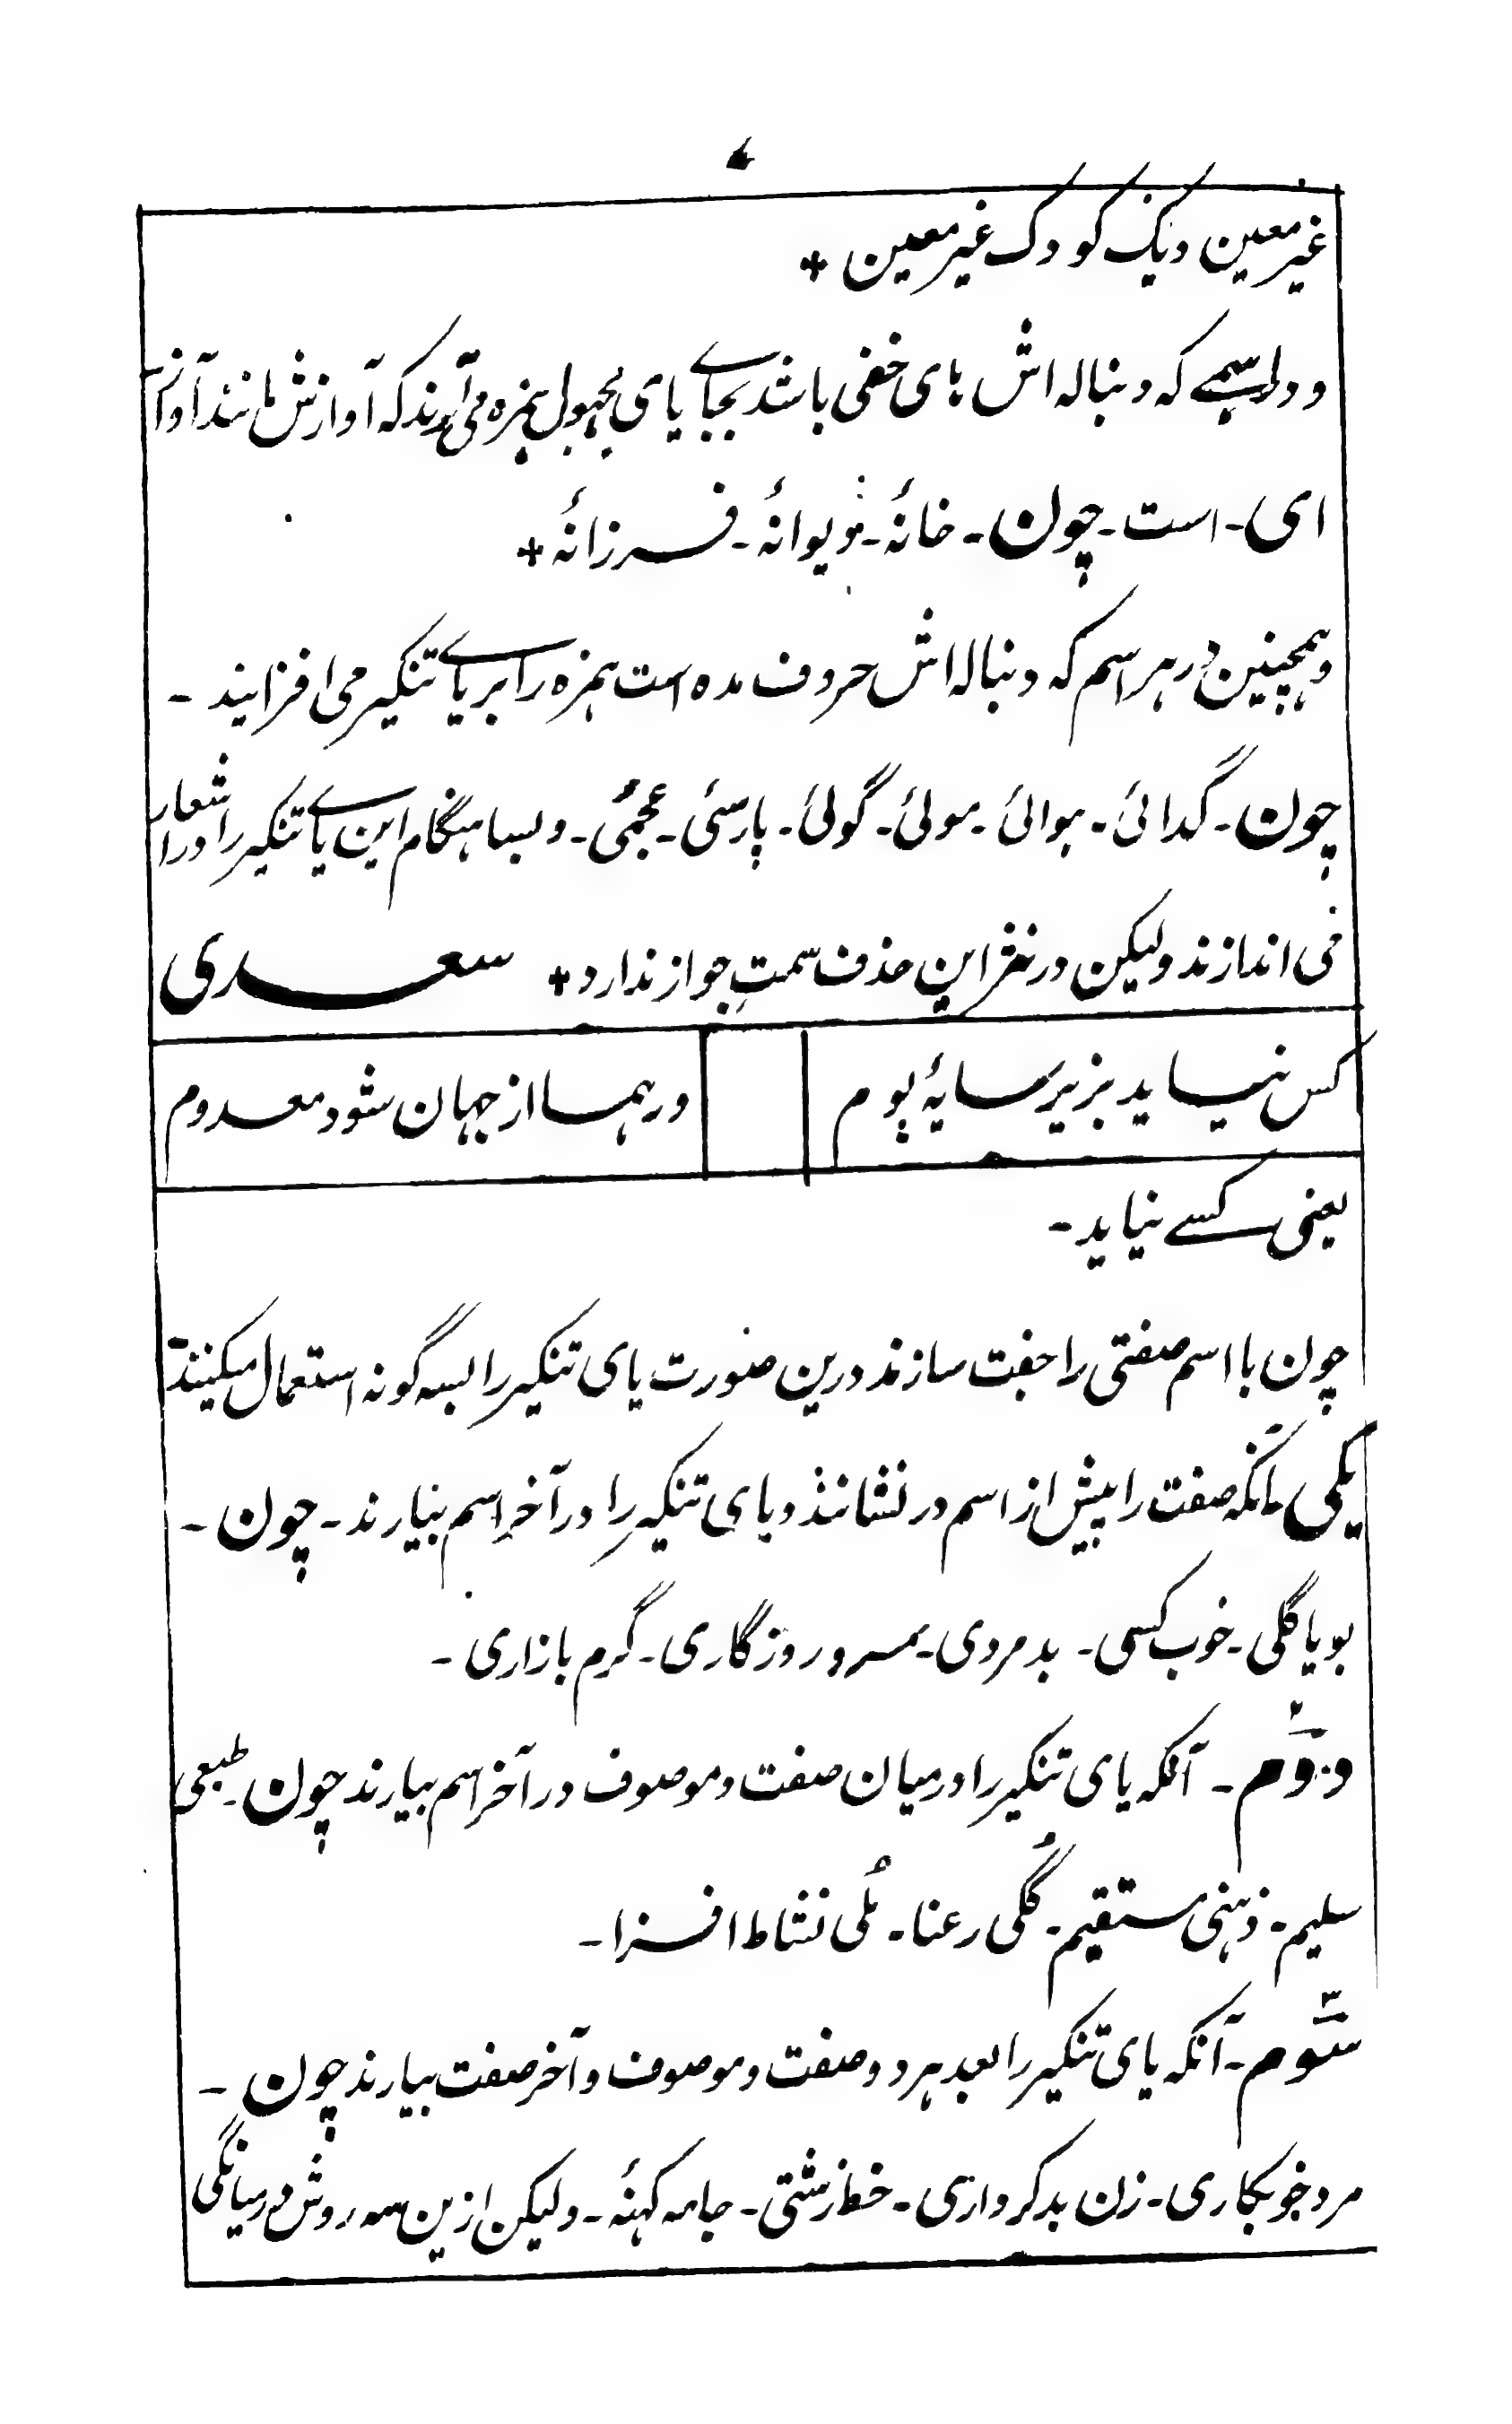 غیر معین و یک کودک غیر معین +
و در اسمے که دنباله اش های خفی باشد بجاے یای مجهول همزه می آرند که آوازش مانند آواز
ای - است - چون - خانهٔ - دیوانهٔ - فرزانهٔ +
و همچنین در هر اسم که دنباله اش حروف مده است همزه را بر یاے تنکیر می افزایند -
چون - گدائی - هوائی - موئی - گوئی - پارسئی - عجمئی - و بسا هنگام این یاے تنکیر را در اشعار
می اندازند ولیکن در نثر این حذف سمتِ جواز ندارد + سعدی
کس نیاید بزیر سایهٔ بوم
ور هما از جهان شود معدوم
یعنی کسے نیاید -
چون با اسم صفتی را جفت سازند درین صورت یای تنکیر را بسه گونه استعمال میکنند -
یکی آنکه صفت را پیش از اسم در نشانند و یای تنکیر را در آخرِ اسم بیارند - چون -
بویا گلی - خوب کسی - بد مردی - روزگاری - گرم بازاری -
دوّم - آنکه یای تنکیر را در میان صفت و موصوف در آخر اسم بیارند چون - طبعی
سلیم - ذهنی مستقیم - گُلی رعنا - مُلی نشاط افزا -
سوّم - آنکه یای تنکیر را بعد هر دو صفت و موصوف و آخر صفت بیارند چون -
مرد خوبکاری - زن بدکرداری - خط زشتی - جامه کهنهٔ - ولیکن ازین سه روش درمیانگی